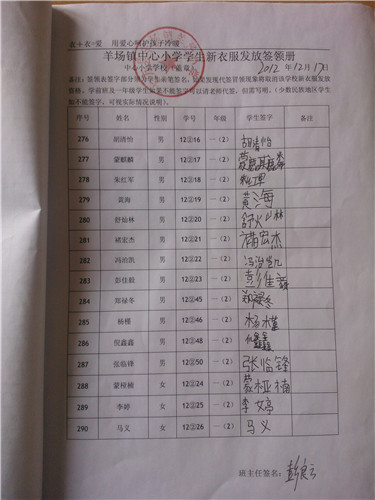 衣+衣=爱 用爱心呵护孩子冷暖
羊场镇中心小学学生新衣服发放签领册
中心小学学校（盖章） 2012年12月17日
备注：签领表签字部分须为学生亲笔签名，如果发现代签冒领现象将取消该学校新衣服发放
资格，学前班及一年级学生如果不能签字可以请老师代签，但需写明。（少数民族地区学生
如不能签字，可视实际情况说明）。
序号 姓名 性别 学号 年级 学生签字 备注
276 胡清怡 男 12②16 一（2） 胡清怡
277 蒙麒麟 男 12②17 一（2） 蒙麒麟
278 朱红军 男 12②18 一（2）
279 黄海 男 12②19 一（2） 黄海
280 舒灿林 男 12②20 一（2） 舒灿林
281 褚宏杰 男 12②21 一（2） 褚宏杰
282 冯治凯 男 12②22 一（2） 冯治凯
283 彭佳毅 男 12②23 一（2） 彭佳毅
284 郑禄冬 男 12②45 一（2） 郑禄冬
285 杨槿 男 12②46 一（2） 杨槿
286 倪鑫鑫 男 12②48 一（2） 倪鑫鑫
287 张临锋 男 12②50 一（2） 张临锋
288 蒙桠楠 女 12②24 一（2） 蒙桠楠
289 李婷 女 12②25 一（2） 李婷
290 马义 女 12②26 一（2） 马义
班主任签名：彭良云